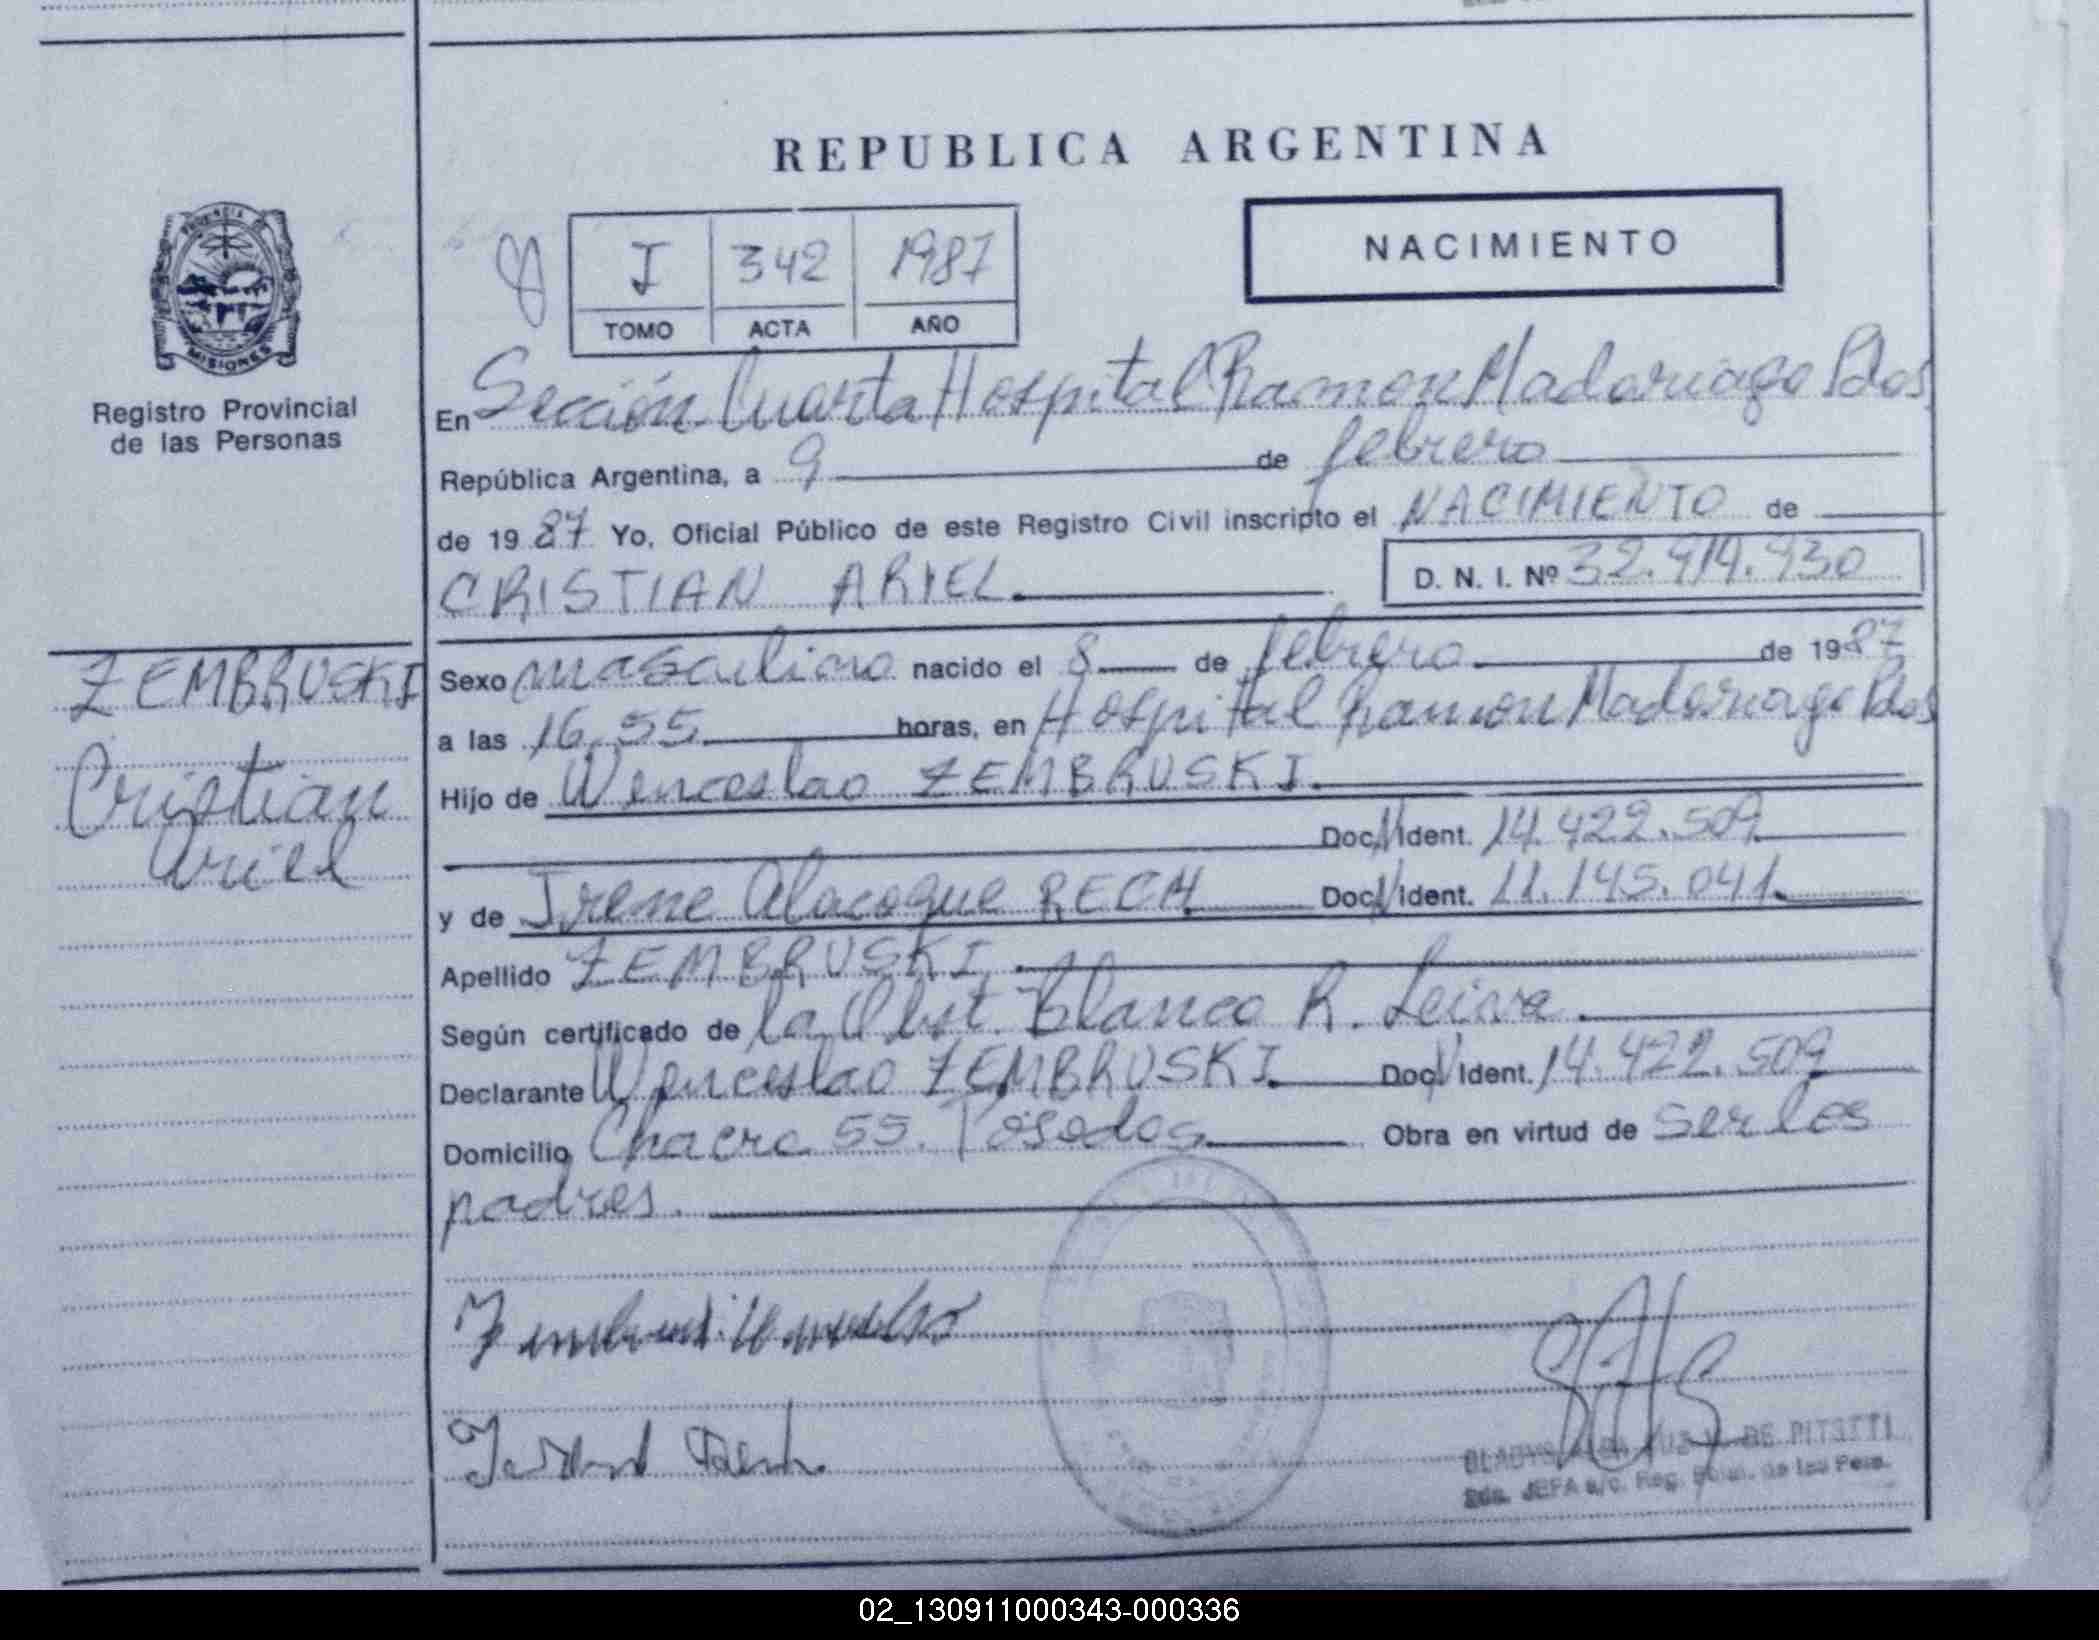 REPUBLICA ARGENTINA
NACIMIENTO
I 342 1987
TOMO ACTA AÑO
PROVINCIA DE
MISIONES
Registro Provincial
de las Personas
En Sección Cuarta Hospital Ramon Madariaga Pdas
República Argentina, a 9 de febrero
de 1987 Yo, Oficial Público de este Registro Civil inscripto el NACIMIENTO de
CRISTIAN ARIEL.
D. N. I. Nº 32.914.930
ZEMBRUSKI
Cristian
Ariel
Sexo masculino nacido el 8 de febrero de 1987
a las 16,55 horas, en Hospital Ramon Madariaga Pdas
Hijo de Wenceslao ZEMBRUSKI.
Doc. Ident. 14.422.509
y de Irene Alacoque RECH Doc. Ident. 11.145.041.
Apellido ZEMBRUSKI.
Según certificado de la Obst. Blanca R. Leiva.
Declarante Wenceslao ZEMBRUSKI. Doc. Ident. 14.422.509
Domicilio Chacra 55. Posadas Obra en virtud de ser los
padres.
GLADYS DE PITSTTI
JEFA a/c. Reg. de las Pers.
02_130911000343-000336